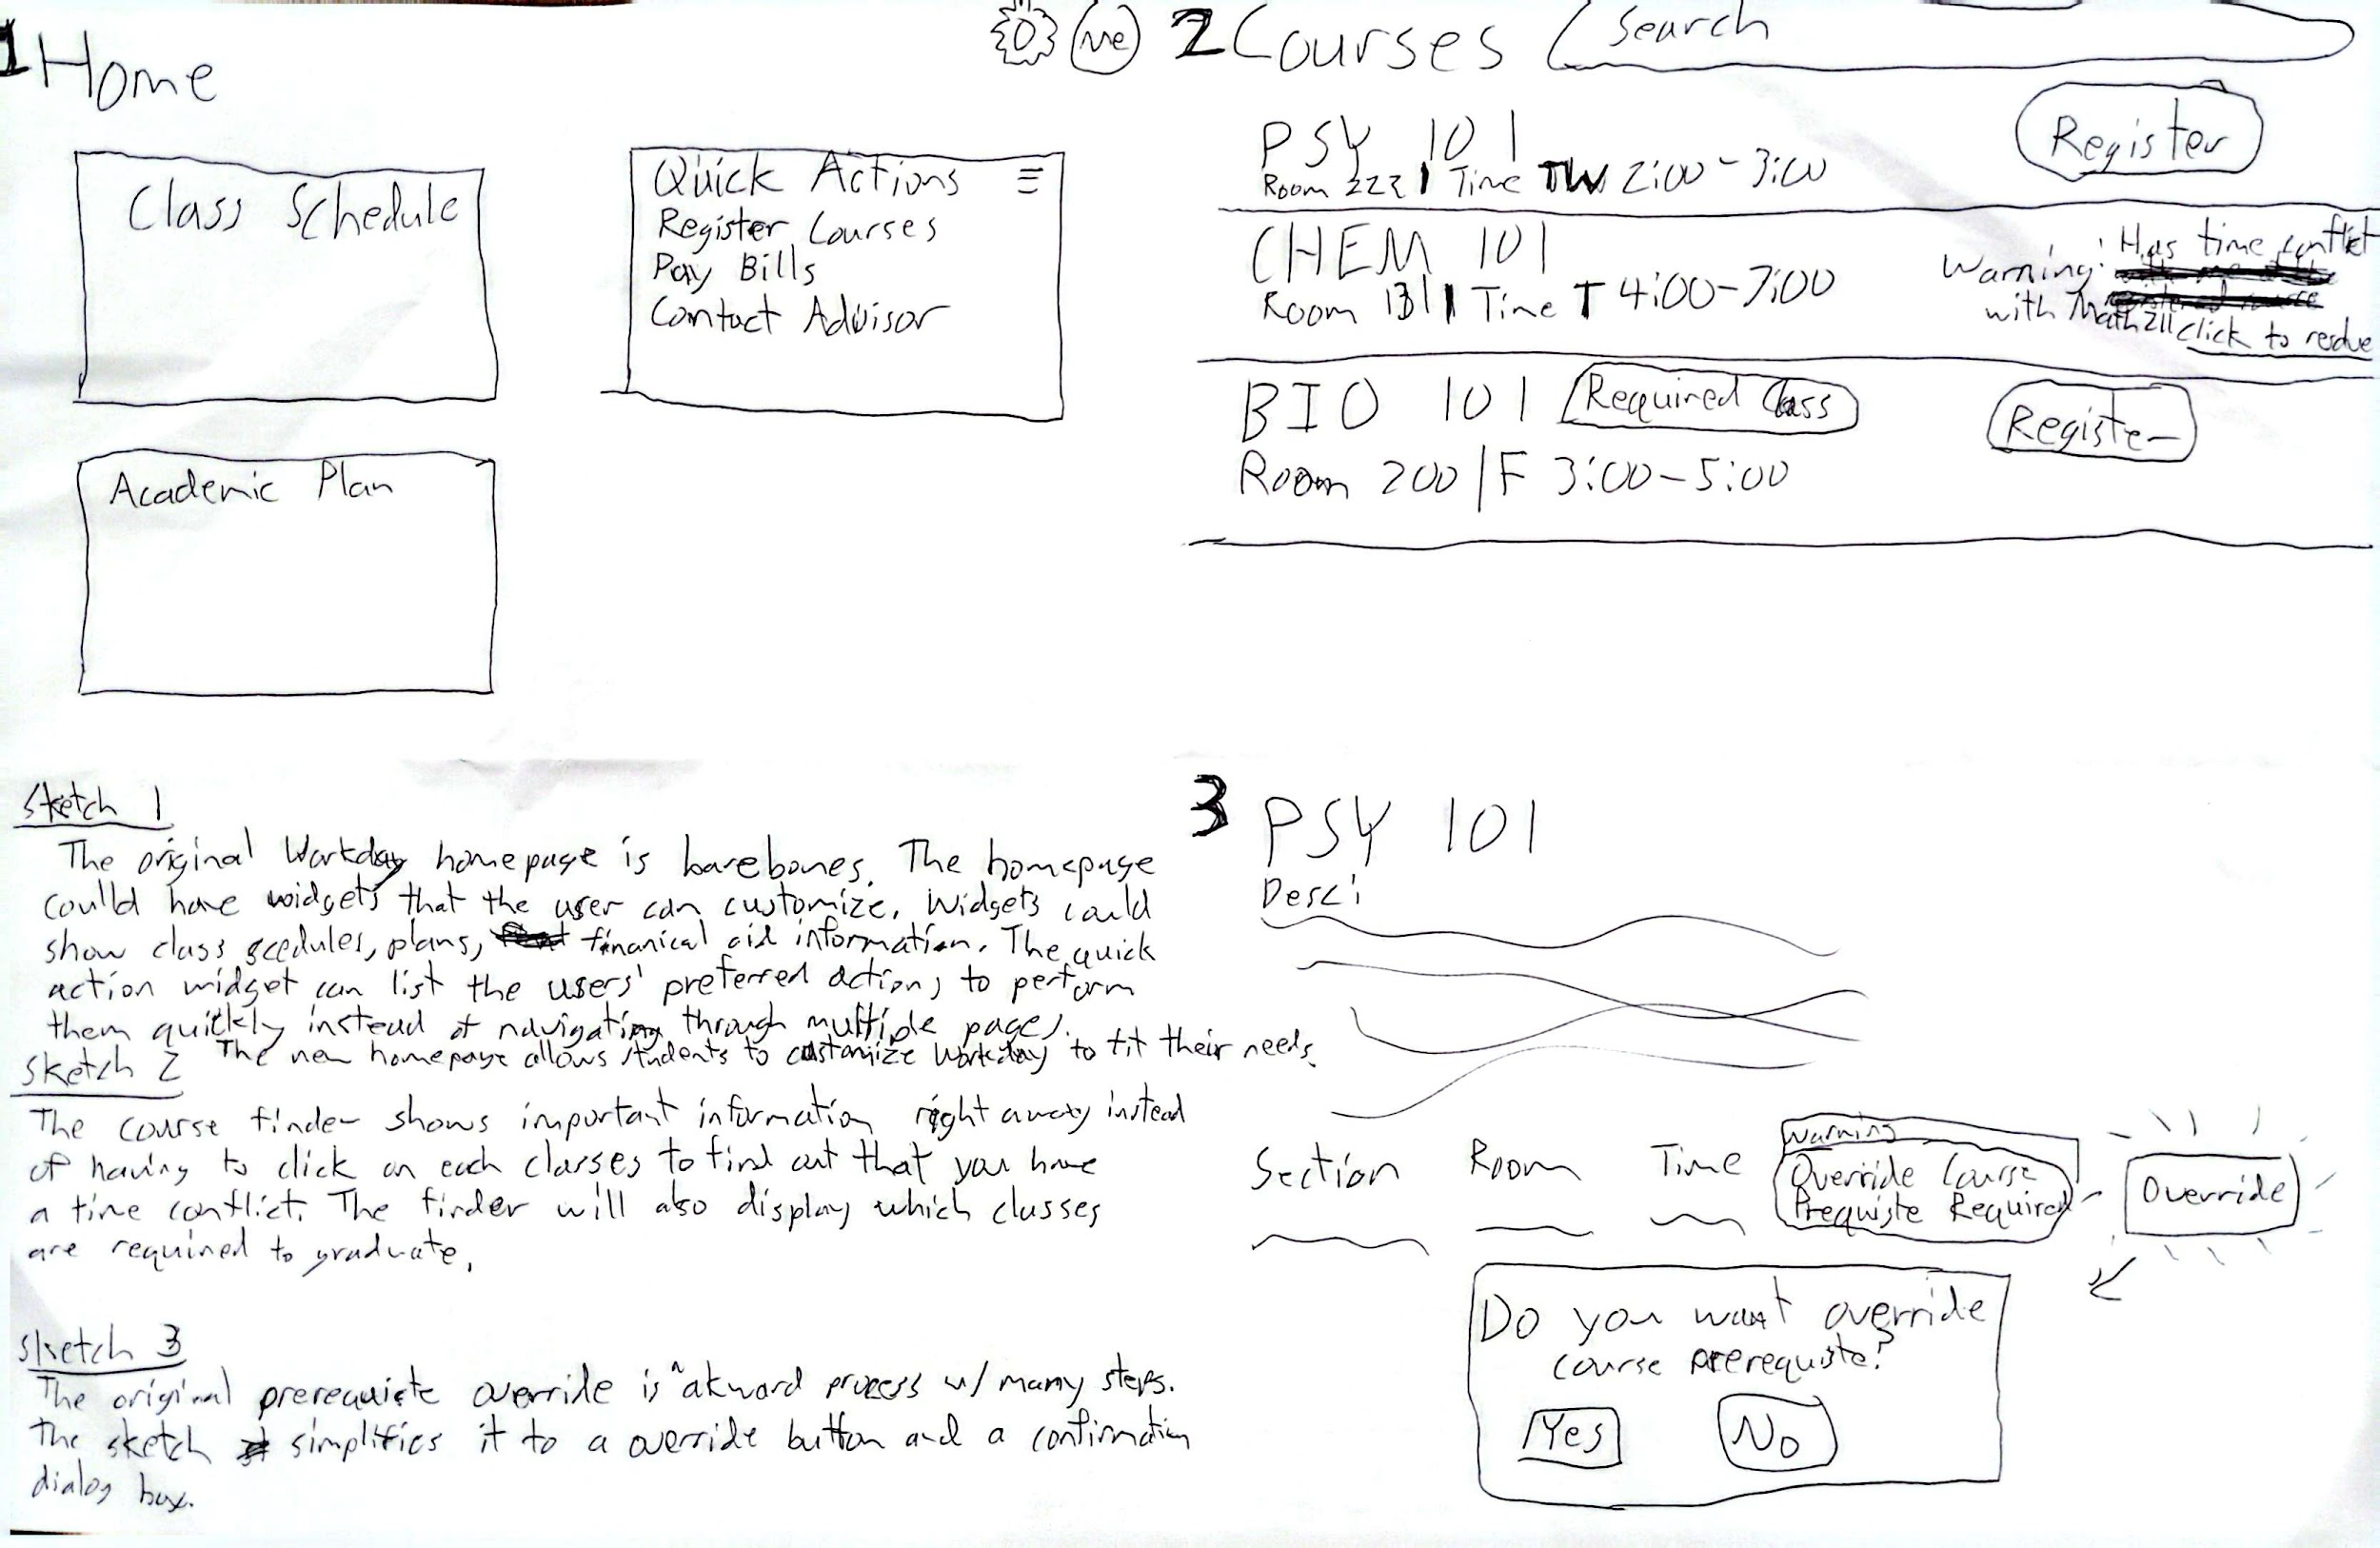 1 Home
me
Class Schedule
Quick Actions
Register Courses
Pay Bills
Contact Advisor
Academic Plan
2 Courses
Search
PSY 101
Room 222 | Time TW 2:00-3:00
Register
CHEM 101
Room 131 | Time T 4:00-7:00
Warning: Has time conflict
with Math 211 click to resolve
BIO 101 Required Class
Room 200 | F 3:00-5:00
Register
Sketch 1
The original Workday homepage is barebones. The homepage
could have widgets that the user can customize. Widgets could
show class scedules, plans, finanical aid information. The quick
action widget can list the users' preferred actions to perform
them quickly instead of navigating through multiple pages.
The new homepage allows students to customize Workday to fit their needs.
Sketch 2
The course finder shows important information right away instead
of having to click on each classes to find out that you have
a time conflict. The finder will also display which classes
are required to graduate.
Sketch 3
The original prerequiste override is ^ akward process w/ many steps.
The sketch simplifies it to a override button and a confirmation
dialog box.
3 PSY 101
Desc:
Section Room Time
Warning
Override Course
Prequiste Required
Override
Do you want override
course prerequiste?
Yes No